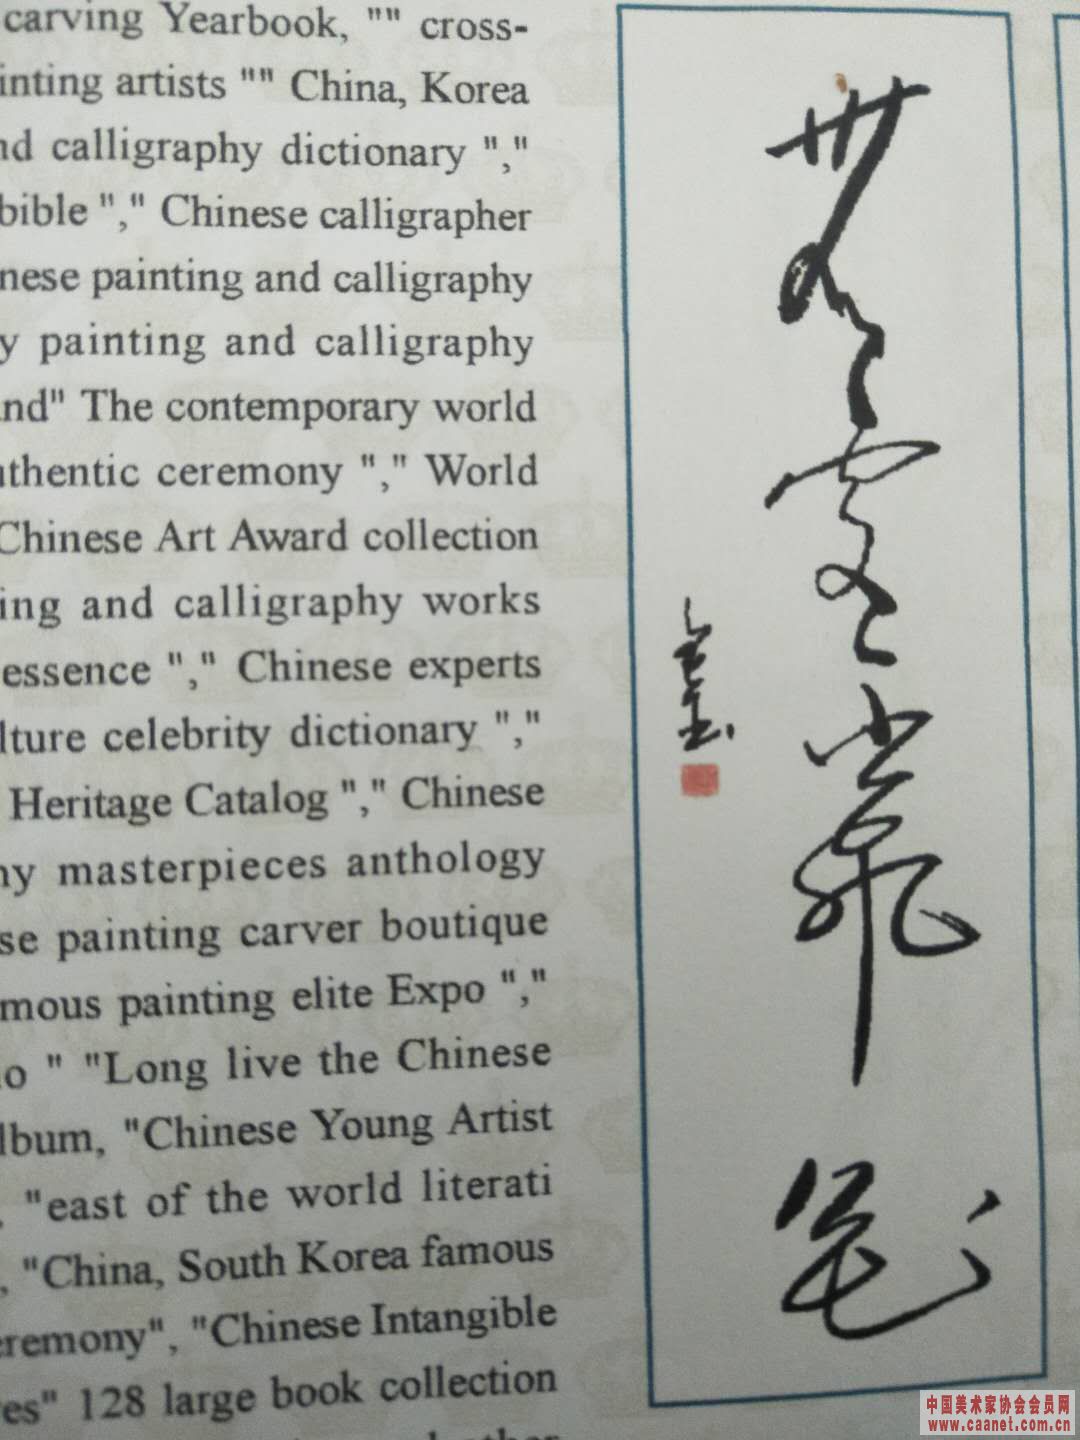 carving Yearbook, "" cross-
inting artists "" China, Korea
nd calligraphy dictionary ","
bible "," Chinese calligrapher
nese painting and calligraphy
y painting and calligraphy
and" The contemporary world
uthentic ceremony "," World
Chinese Art Award collection
ing and calligraphy works
essence "," Chinese experts
lture celebrity dictionary ","
Heritage Catalog "," Chinese
ny masterpieces anthology
se painting carver boutique
mous painting elite Expo ","
o " "Long live the Chinese
lbum, "Chinese Young Artist
, "east of the world literati
, "China, South Korea famous
eremony", "Chinese Intangible
res" 128 large book collection
中国美术家协会会员网
www.caanet.com.cn